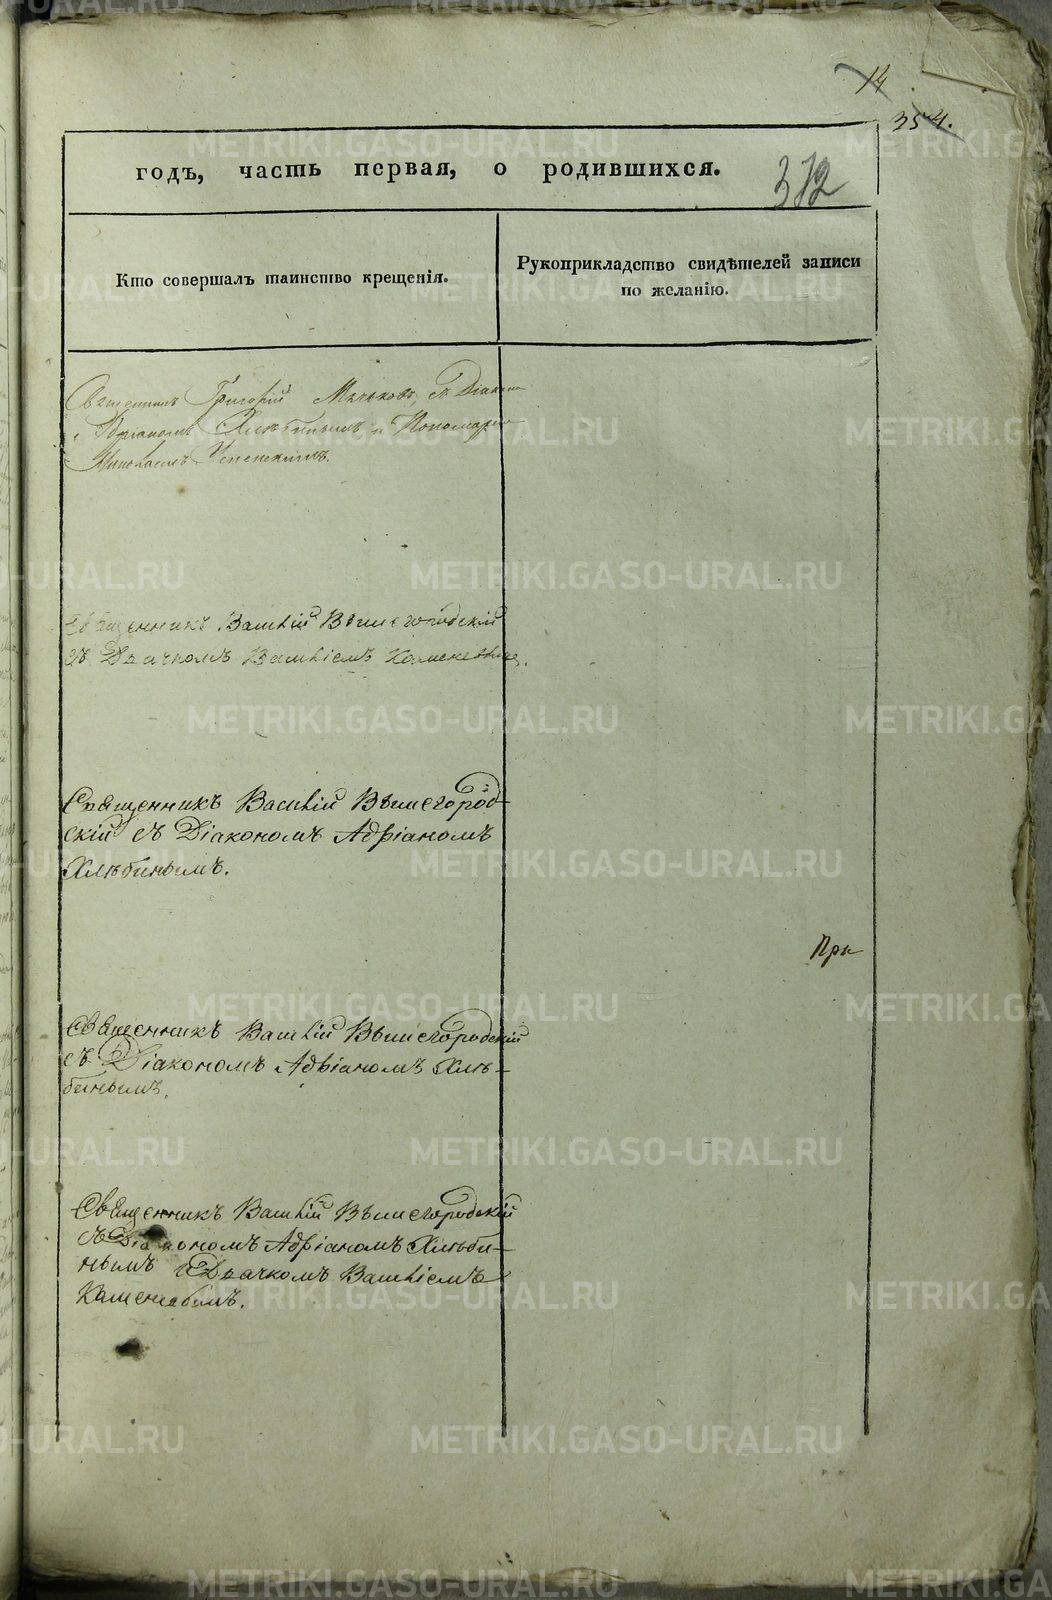 14
354.
годъ, часть первая, о родившихся.
372
Кто совершалъ таинство крещенія.
Рукоприкладство свидѣтелей записи
по желанію.
Священникъ Григорій съ Діакономъ
Адріаномъ Хлѣбинымъ и Пономаремъ
Николаемъ Успенскимъ.
Священникъ Василій Вышегородскій
съ Дьячкомъ Василіемъ
Священникъ Василій Вышегород-
скій съ Діакономъ Адріаномъ
Хлѣбинымъ.
При
Священникъ Василій Вышегородскій
съ Діакономъ Адріаномъ Хлѣ-
бинымъ.
Священникъ Василій Вышегородскій
съ Діакономъ Адріаномъ Хлѣби-
нымъ и Дьячкомъ Василіемъ
METRIKI.GASO-URAL.RU